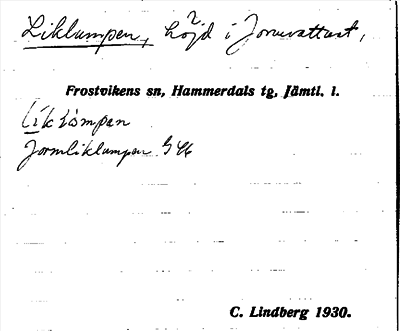 Liklumpen, höjd i Jormvattnet,
Frostvikens sn, Hammerdals tg, Jämtl. l.
Jormliklumpen
C. Lindberg 1930.